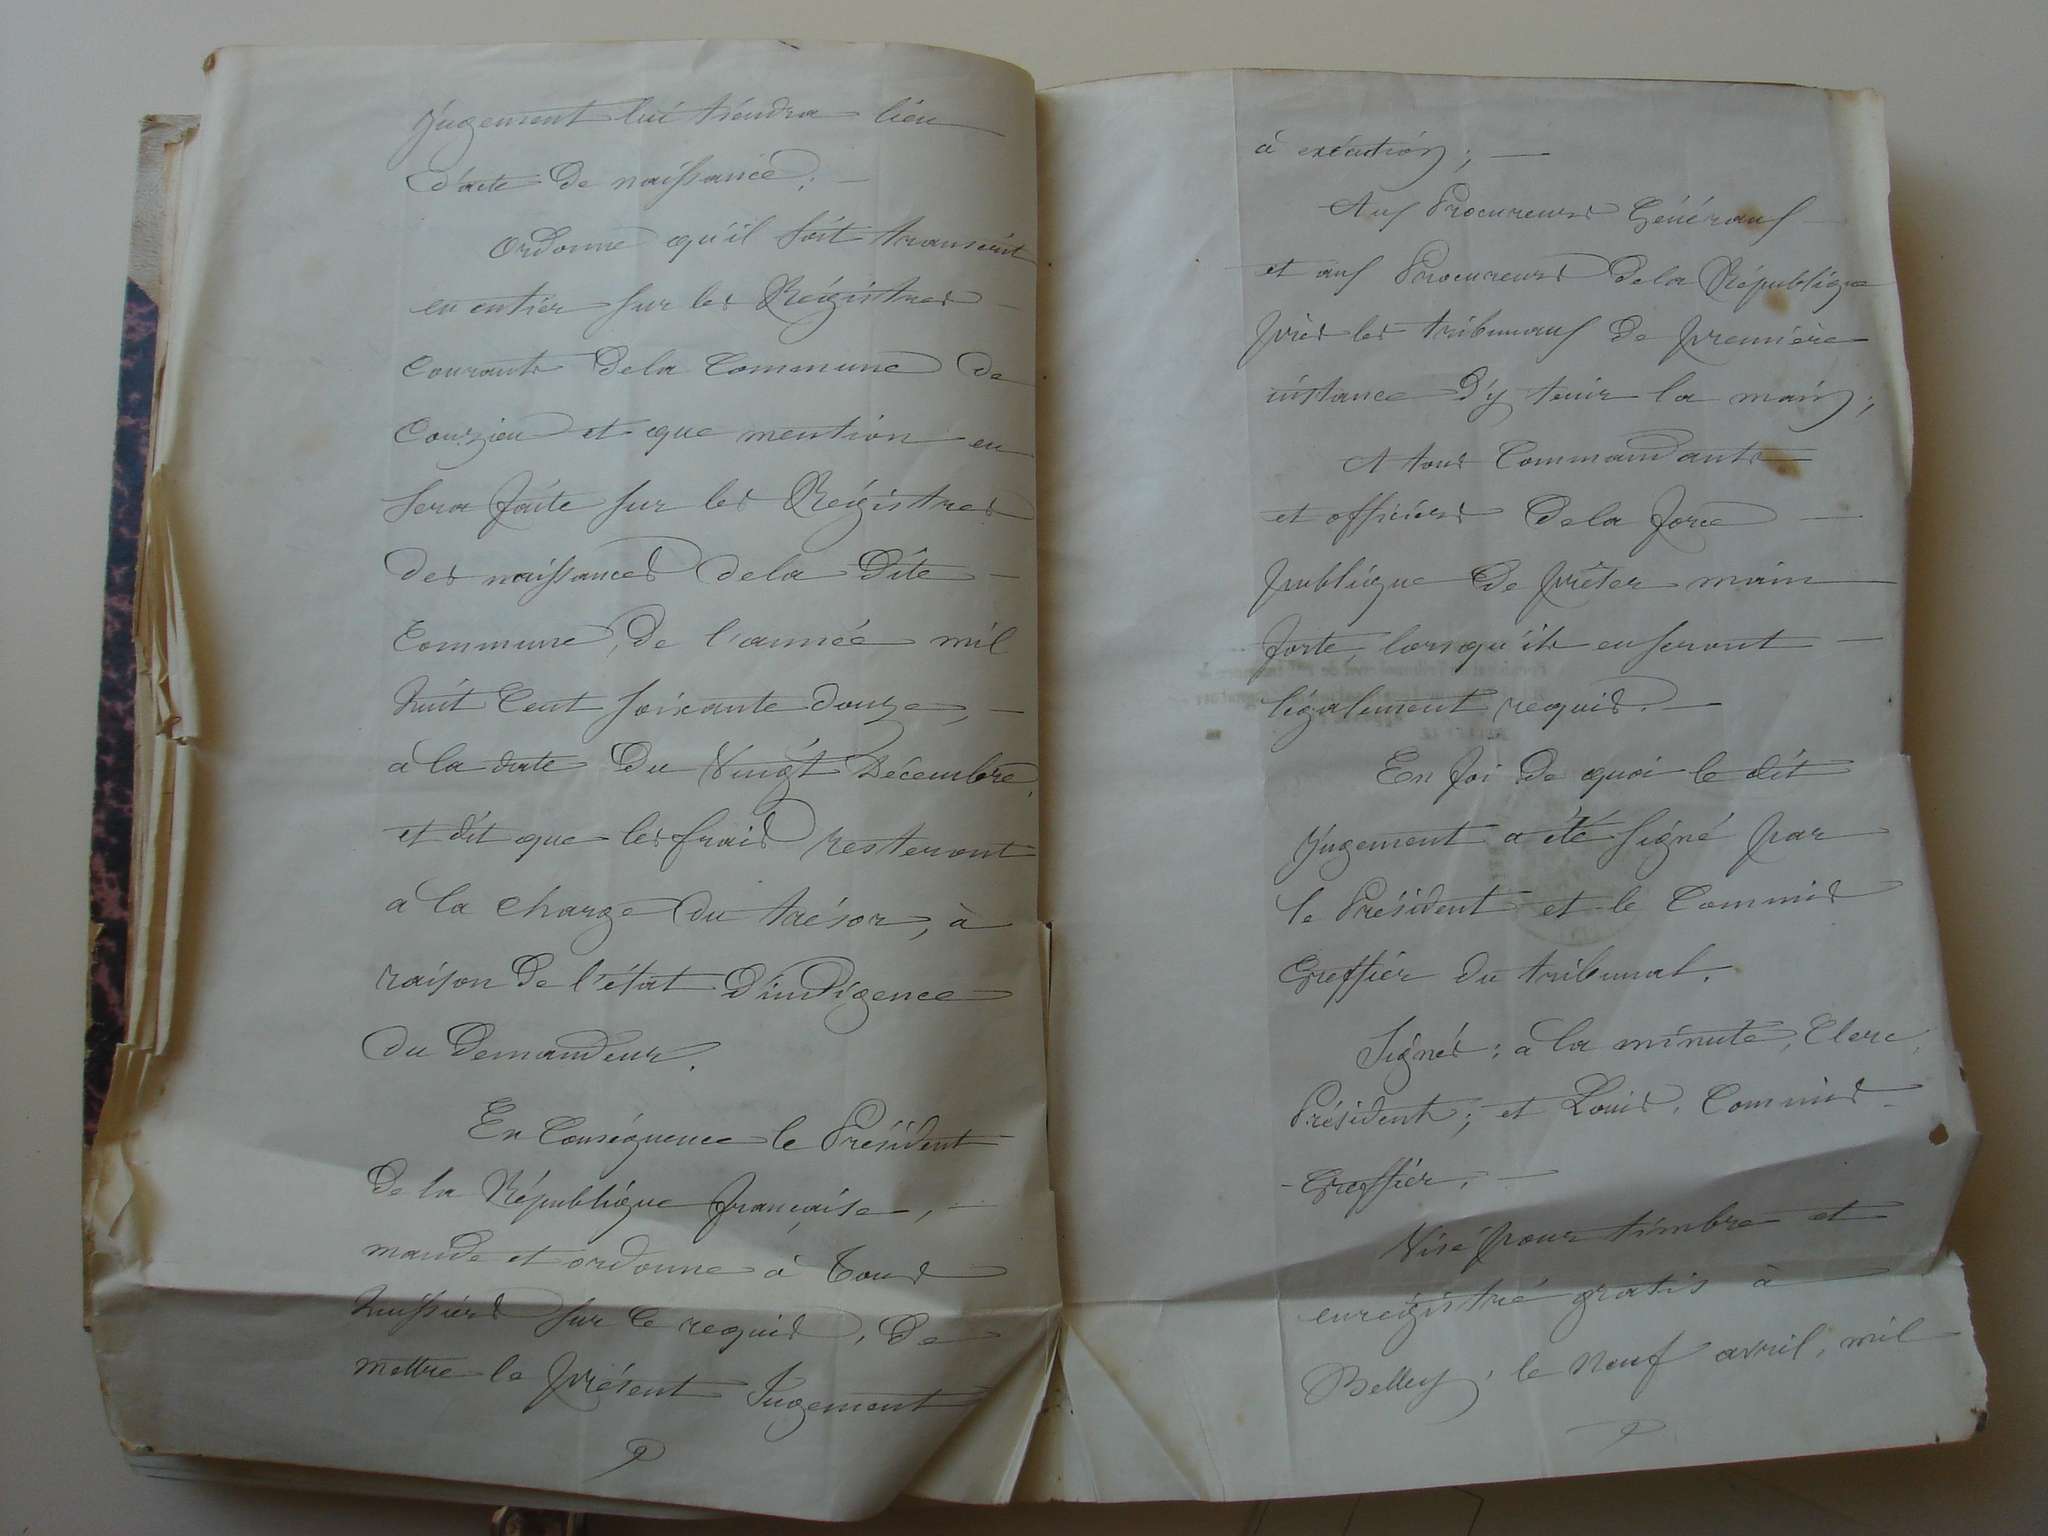 Jugement lui tiendra lieu
d'acte de naissance; —
Ordonne qu'il soit transcrit
en entier sur les Régistres —
Courants de la Commune de
Couzieu et que mention en
sera faite sur les Régistres
des naissances de la dite —
Commune, de l'année mil
huit Cent soixante douze, —
à la date du Vingt Décembre,
et dit que les frais resteront
à la charge du trésor, à
raison de l'état d'indigence
du demandeur.
En Conséquence le Président
de la République française, —
mande et ordonne à tous
huissiers sur ce requis, de
mettre le présent Jugement
à exécution; —
Aux Procureurs Généraux —
et aux Procureurs de la République
près les tribunaux de première
instance d'y tenir la main;
A tous Commandants
et officiers de la force —
publique de prêter main
forte, lorsqu'ils en seront —
légalement requis. —
En foi de quoi le dit
Jugement a été signé par
le Président et le Commis
Greffier du tribunal.
Signés: à la minute, Clerc,
Président; et Louis, Commis-
-Greffier. —
Visé pour timbre et
enregistré gratis à
Belley, le Neuf avril, mil